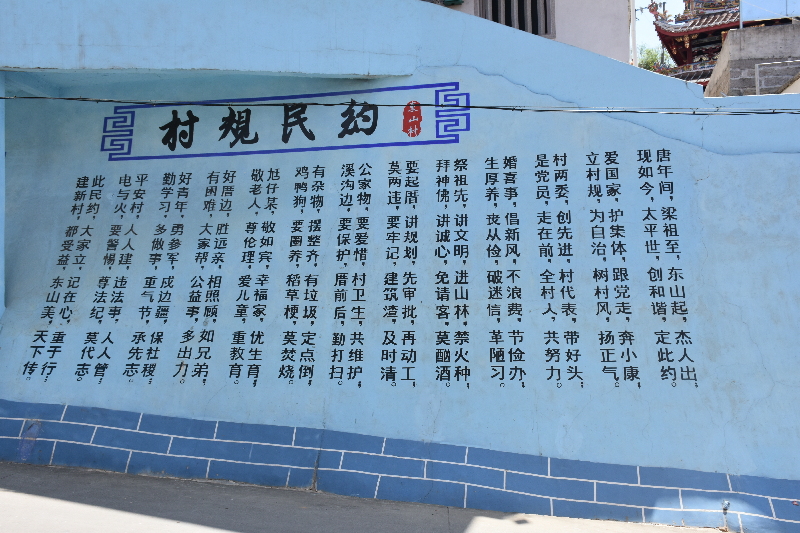 村規民約
东山村
唐年间，梁祖至，东山起，杰人出；
现如今，太平世，创和谐，定此约。
爱国家，护集体，跟党走，奔小康，
立村规，为自治，树村风，扬正气。
村两委，创先进，村代表，带好头；
是党员，走在前，全村人，共努力。
婚喜事，倡新风，不浪费，节俭办，
生厚养，丧从俭，破迷信，革陋习。
祭祖先，讲文明，进山林，禁火种，
拜神佛，讲诚心，免请客，莫酗酒。
要起厝，讲规划，先审批，再动工，
莫两违，要牢记，建筑渣，及时清。
公家物，要爱惜，村卫生，共维护，
溪沟边，要保护，厝前后，勤打扫。
有杂物，摆整齐，有垃圾，定点倒，
鸡鸭狗，要圈养，稻草梗，莫焚烧。
尪仔某，敬如宾，幸福家，优生育；
敬老人，尊伦理，爱儿童，重教育。
好厝边，胜远亲，相照顾，如兄弟，
有困难，大家帮，公益事，多出力。
好青年，勇参军，戍边疆，保社稷；
勤学习，多做事，重气节，承先志。
平安村，人人建，违法事，人人管；
电与火，要警惕，尊法纪，莫代志。
此民约，大家立，记在心，重于行；
建新村，都受益，东山美，天下传。